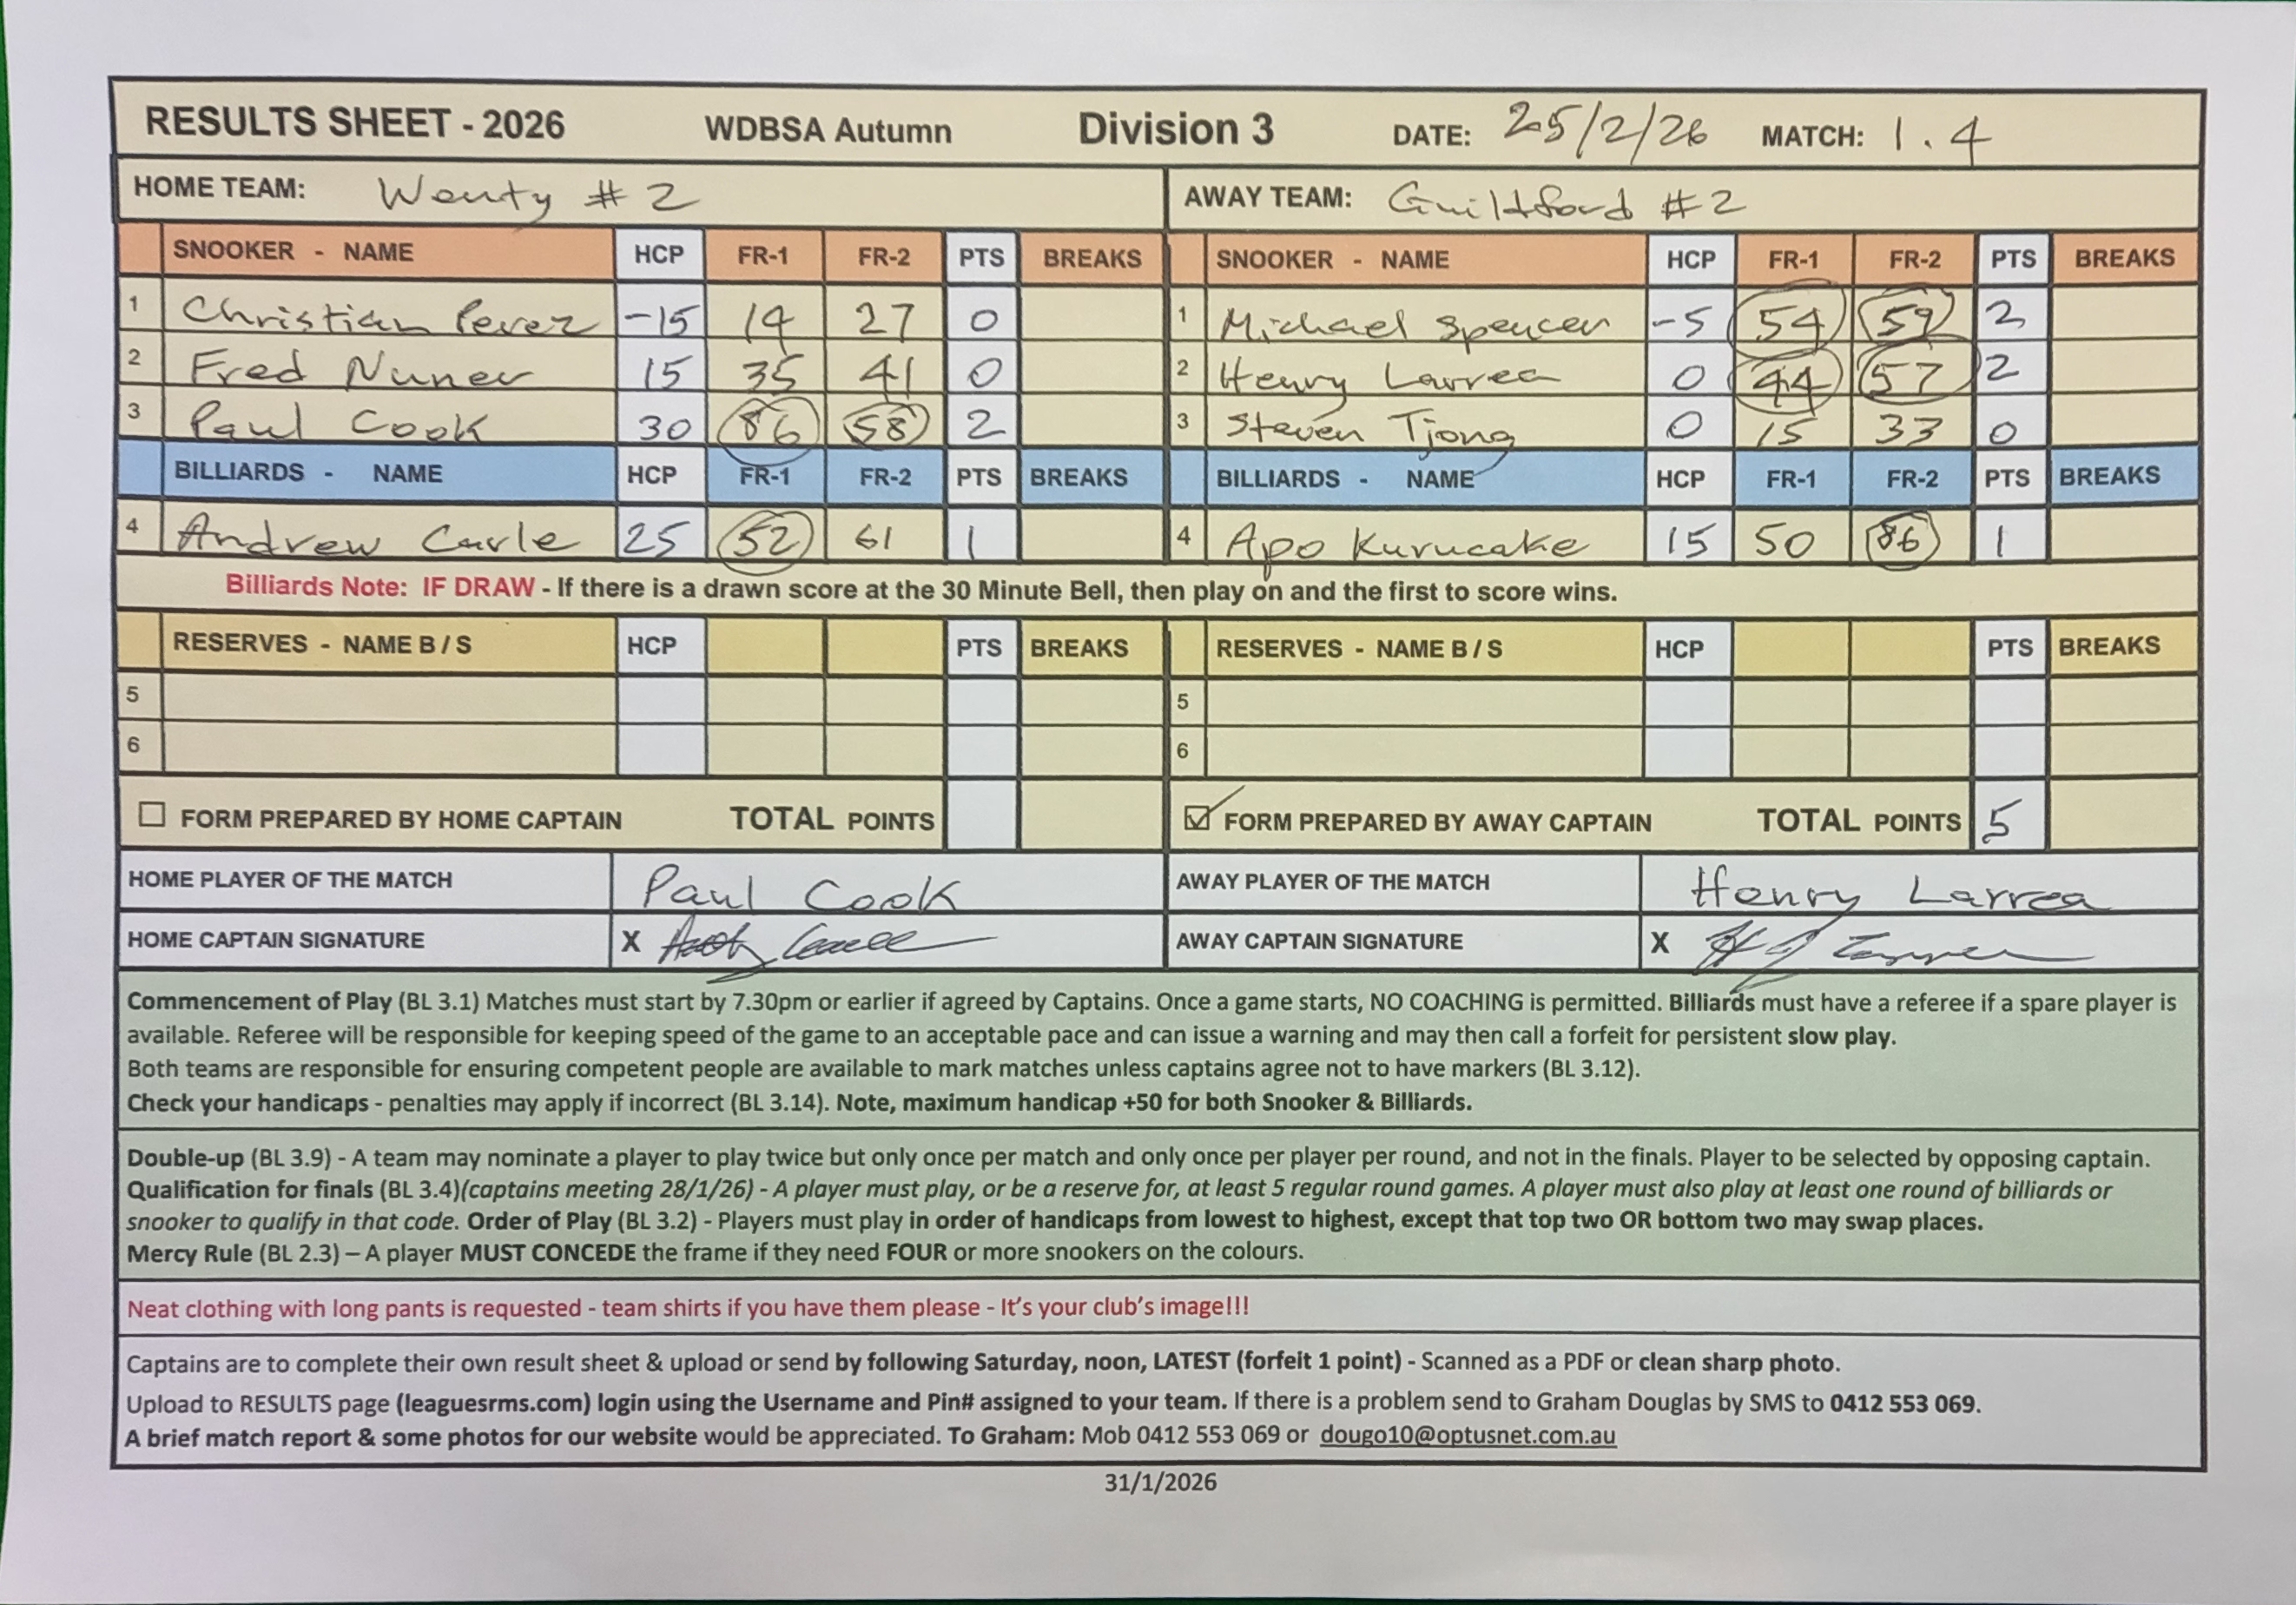 RESULTS SHEET - 2026 WDBSA Autumn Division 3 DATE: 25/2/26 MATCH: 1.4
HOME TEAM: Wenty #2 AWAY TEAM: Guildford #2
SNOOKER - NAME HCP FR-1 FR-2 PTS BREAKS SNOOKER - NAME HCP FR-1 FR-2 PTS BREAKS
1 Christian Perez -15 14 27 0 1 Michael Spencer -5 54 59 2
2 Fred Nunez 15 35 41 0 2 Henry Larrea 0 44 57 2
3 Paul Cook 30 86 58 2 3 Steven Tjong 0 15 33 0
BILLIARDS - NAME HCP FR-1 FR-2 PTS BREAKS BILLIARDS - NAME HCP FR-1 FR-2 PTS BREAKS
4 Andrew Carle 25 52 61 1 4 Apo Kurucake 15 50 86 1
Billiards Note: IF DRAW - If there is a drawn score at the 30 Minute Bell, then play on and the first to score wins.
RESERVES - NAME B / S HCP PTS BREAKS RESERVES - NAME B / S HCP PTS BREAKS
5 5
6 6
FORM PREPARED BY HOME CAPTAIN TOTAL POINTS FORM PREPARED BY AWAY CAPTAIN TOTAL POINTS 5
HOME PLAYER OF THE MATCH Paul Cook AWAY PLAYER OF THE MATCH Henry Larrea
HOME CAPTAIN SIGNATURE X AWAY CAPTAIN SIGNATURE X
Commencement of Play (BL 3.1) Matches must start by 7.30pm or earlier if agreed by Captains. Once a game starts, NO COACHING is permitted. Billiards must have a referee if a spare player is
available. Referee will be responsible for keeping speed of the game to an acceptable pace and can issue a warning and may then call a forfeit for persistent slow play.
Both teams are responsible for ensuring competent people are available to mark matches unless captains agree not to have markers (BL 3.12).
Check your handicaps - penalties may apply if incorrect (BL 3.14). Note, maximum handicap +50 for both Snooker & Billiards.
Double-up (BL 3.9) - A team may nominate a player to play twice but only once per match and only once per player per round, and not in the finals. Player to be selected by opposing captain.
Qualification for finals (BL 3.4)(captains meeting 28/1/26) - A player must play, or be a reserve for, at least 5 regular round games. A player must also play at least one round of billiards or
snooker to qualify in that code. Order of Play (BL 3.2) - Players must play in order of handicaps from lowest to highest, except that top two OR bottom two may swap places.
Mercy Rule (BL 2.3) – A player MUST CONCEDE the frame if they need FOUR or more snookers on the colours.
Neat clothing with long pants is requested - team shirts if you have them please - It's your club's image!!!
Captains are to complete their own result sheet & upload or send by following Saturday, noon, LATEST (forfeit 1 point) - Scanned as a PDF or clean sharp photo.
Upload to RESULTS page (leaguesrms.com) login using the Username and Pin# assigned to your team. If there is a problem send to Graham Douglas by SMS to 0412 553 069.
A brief match report & some photos for our website would be appreciated. To Graham: Mob 0412 553 069 or dougo10@optusnet.com.au
31/1/2026